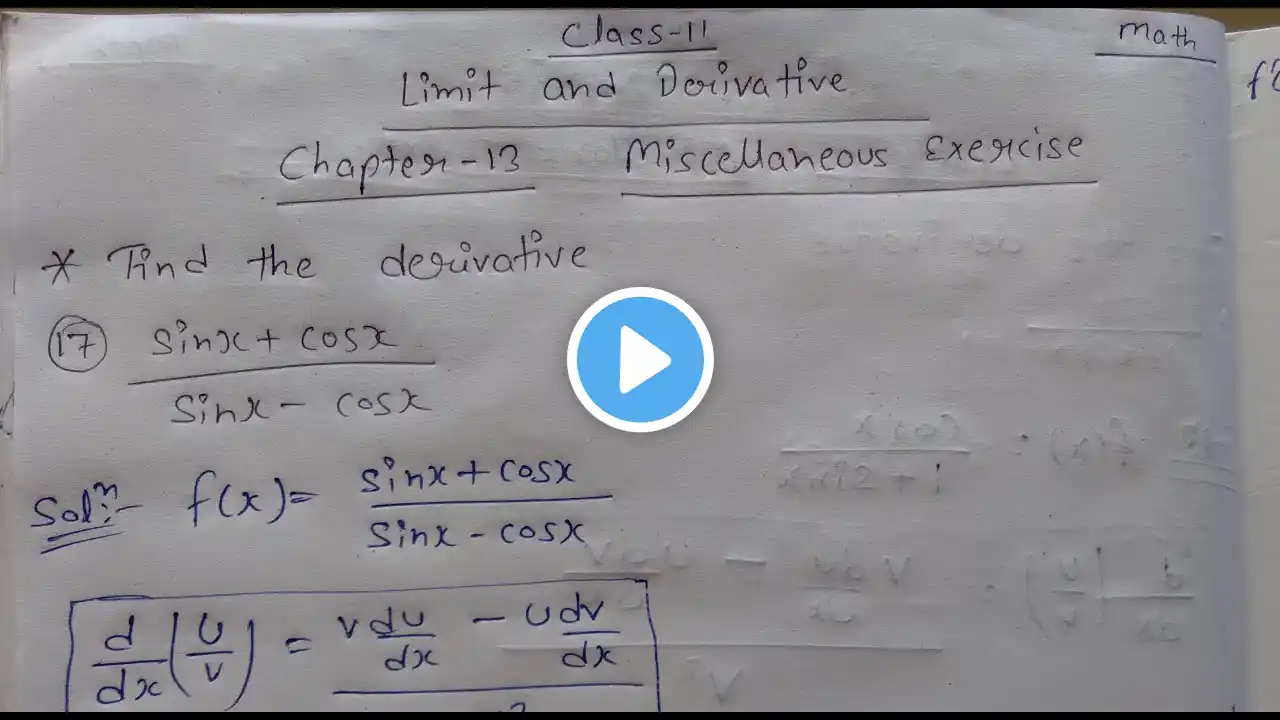 Class-11
Math
Limit and Derivative
Chapter-13 Miscellaneous Exercise
* Find the derivative
(17) sinx + cosx
sinx - cosx
Solⁿ:- f(x) = sinx + cosx
sinx - cosx
d/dx (U/V) = V du/dx - U dv/dx